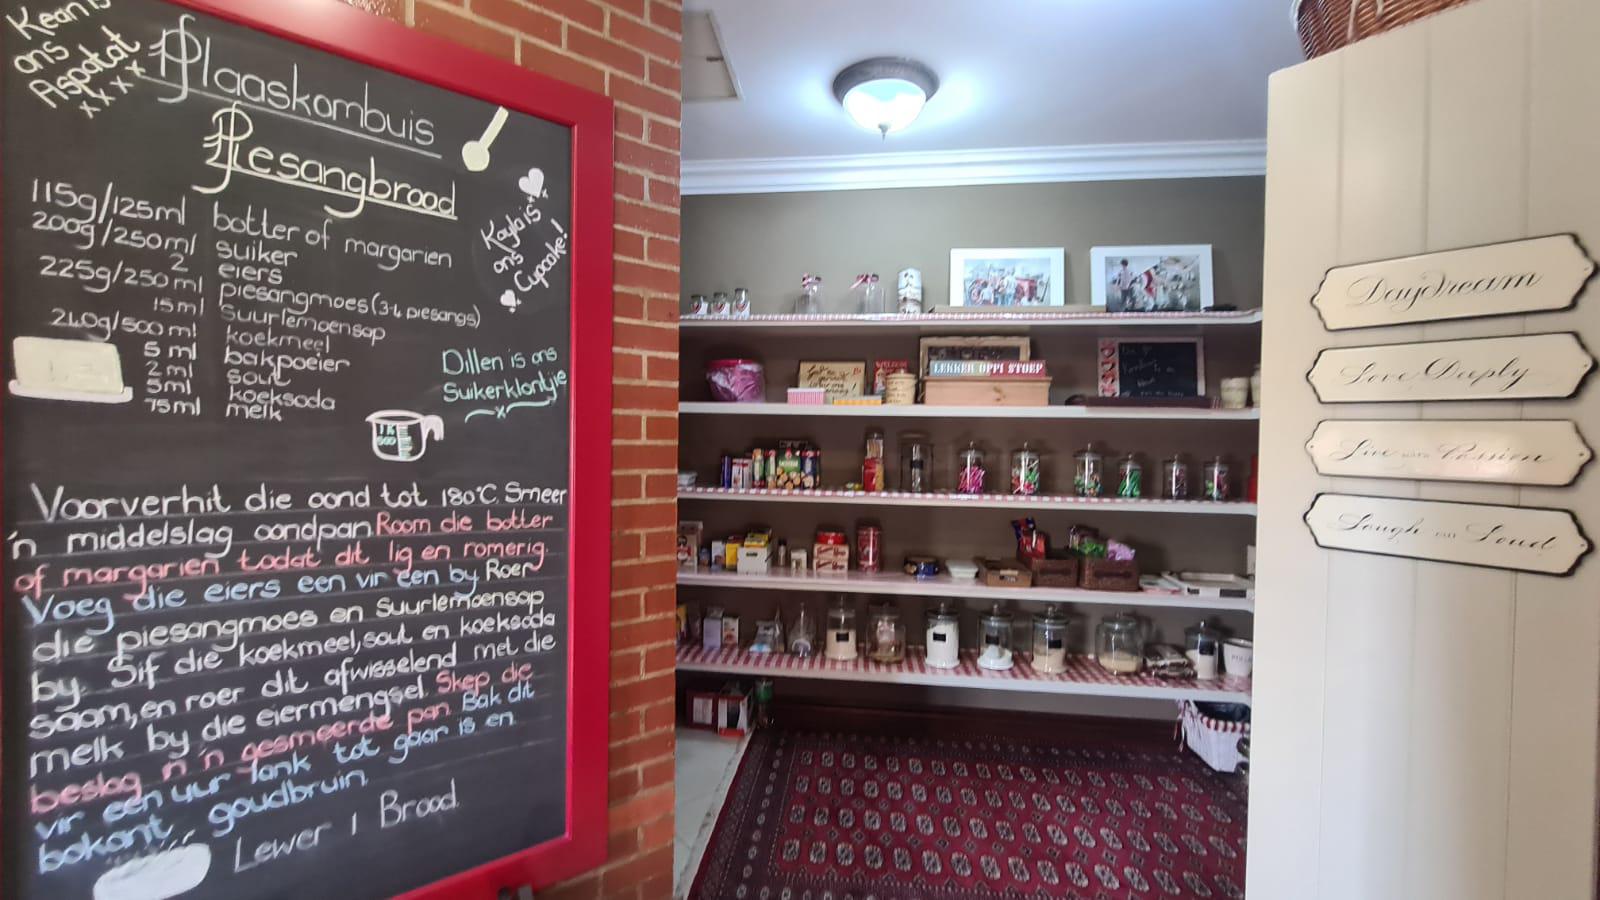 Kean is
ons
Aspatat
xxxx
Plaaskombuis
Piesangbrood
115g/125ml botter of margarien
200g/250ml suiker
2 eiers
225g/250ml piesangmoes (3-4 piesangs)
15ml suurlemoensap
240g/500ml koekmeel
5 ml bakpoeier
2 ml sout
5ml koeksoda
75ml melk
Kayla is
ons
Cupcake!
Dillen is ons
Suikerklontjie
x
Voorverhit die oond tot 180°C. Smeer
'n middelslag oondpan. Room die botter
of margarien totdat dit lig en romerig.
Voeg die eiers een vir een by Roer
die piesangmoes en suurlemoensap
by. Sif die koekmeel, sout en koeksoda
saam, en roer dit afwisselend met die
melk by die eiermengsel. Skep die
beslag n 'n gesmeerde pan. Bak dit
vir een uur lank tot gaar is en
bokant goudbruin.
Lewer 1 Brood.
LEKKER OPPI STOEP
Daydream
Love Deeply
Live with Passion
Laugh out Loud